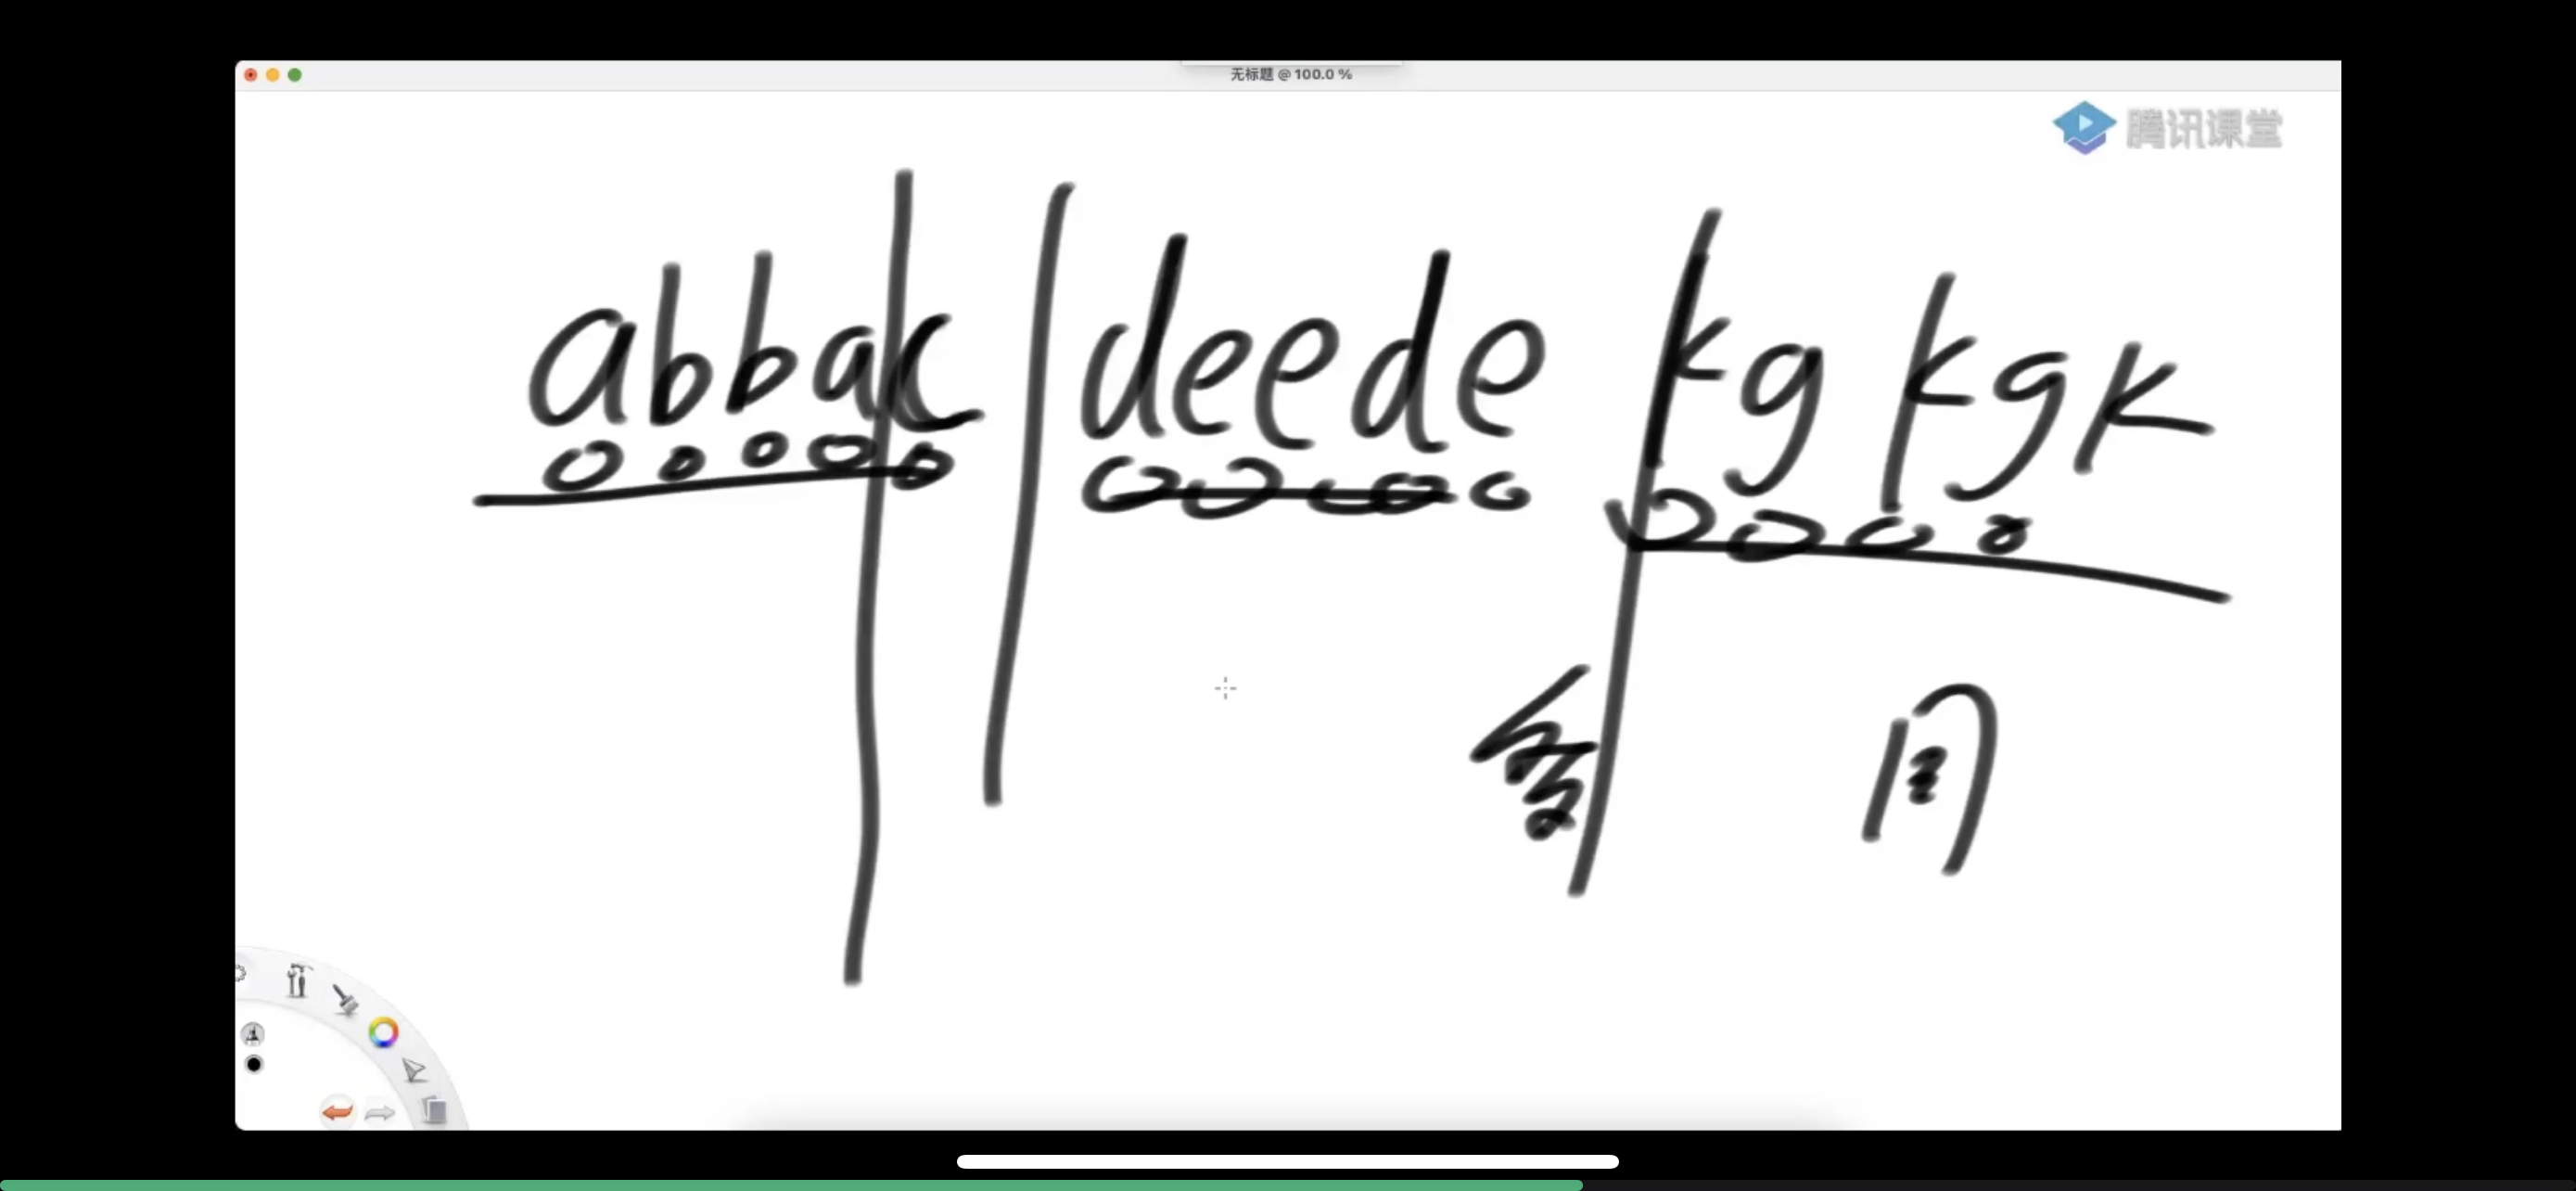 无标题 @ 100.0 %
腾讯课堂
abbac deede kgkgk